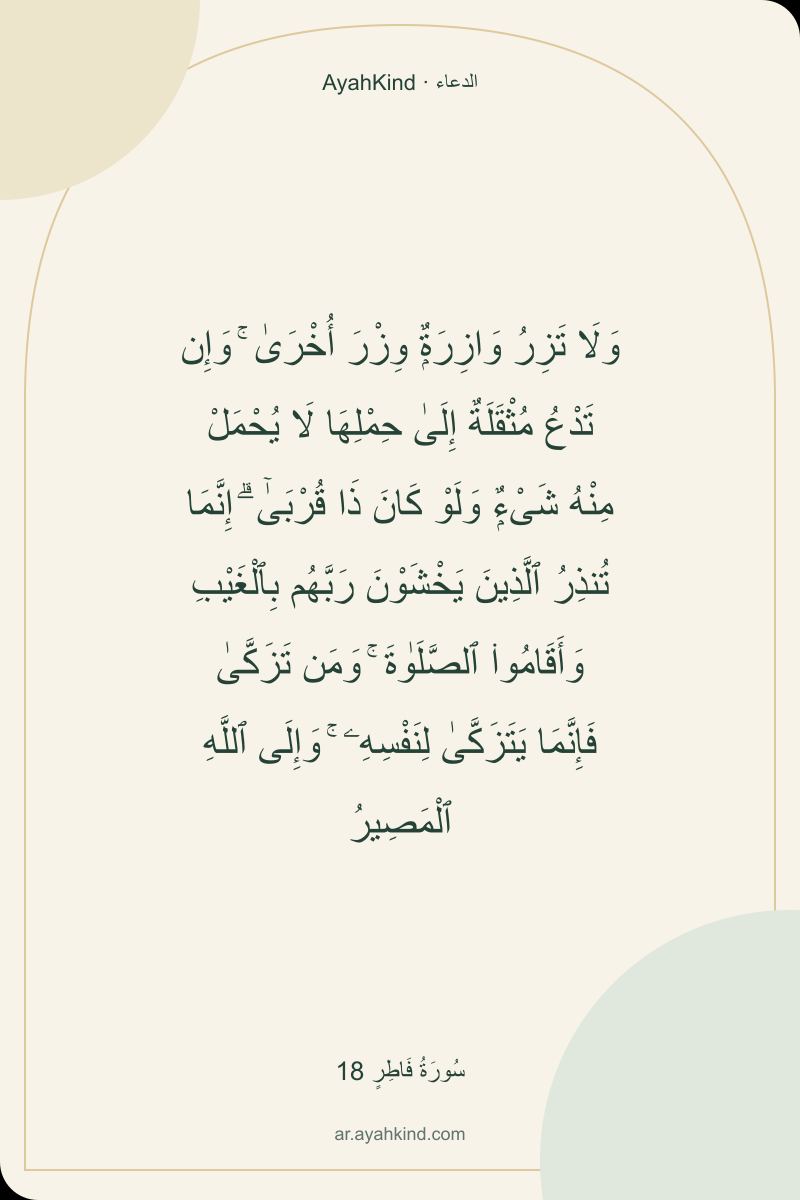 AyahKind · الدعاء
وَلَا تَزِرُ وَازِرَةٌۭ وِزْرَ أُخْرَىٰ ۚ وَإِن
تَدْعُ مُثْقَلَةٌ إِلَىٰ حِمْلِهَا لَا يُحْمَلْ
مِنْهُ شَىْءٌۭ وَلَوْ كَانَ ذَا قُرْبَىٰٓ ۗ إِنَّمَا
تُنذِرُ ٱلَّذِينَ يَخْشَوْنَ رَبَّهُم بِٱلْغَيْبِ
وَأَقَامُوا۟ ٱلصَّلَوٰةَ ۚ وَمَن تَزَكَّىٰ
فَإِنَّمَا يَتَزَكَّىٰ لِنَفْسِهِۦ ۚ وَإِلَى ٱللَّهِ
ٱلْمَصِيرُ
سُورَةُ فَاطِرٍ 18
ar.ayahkind.com